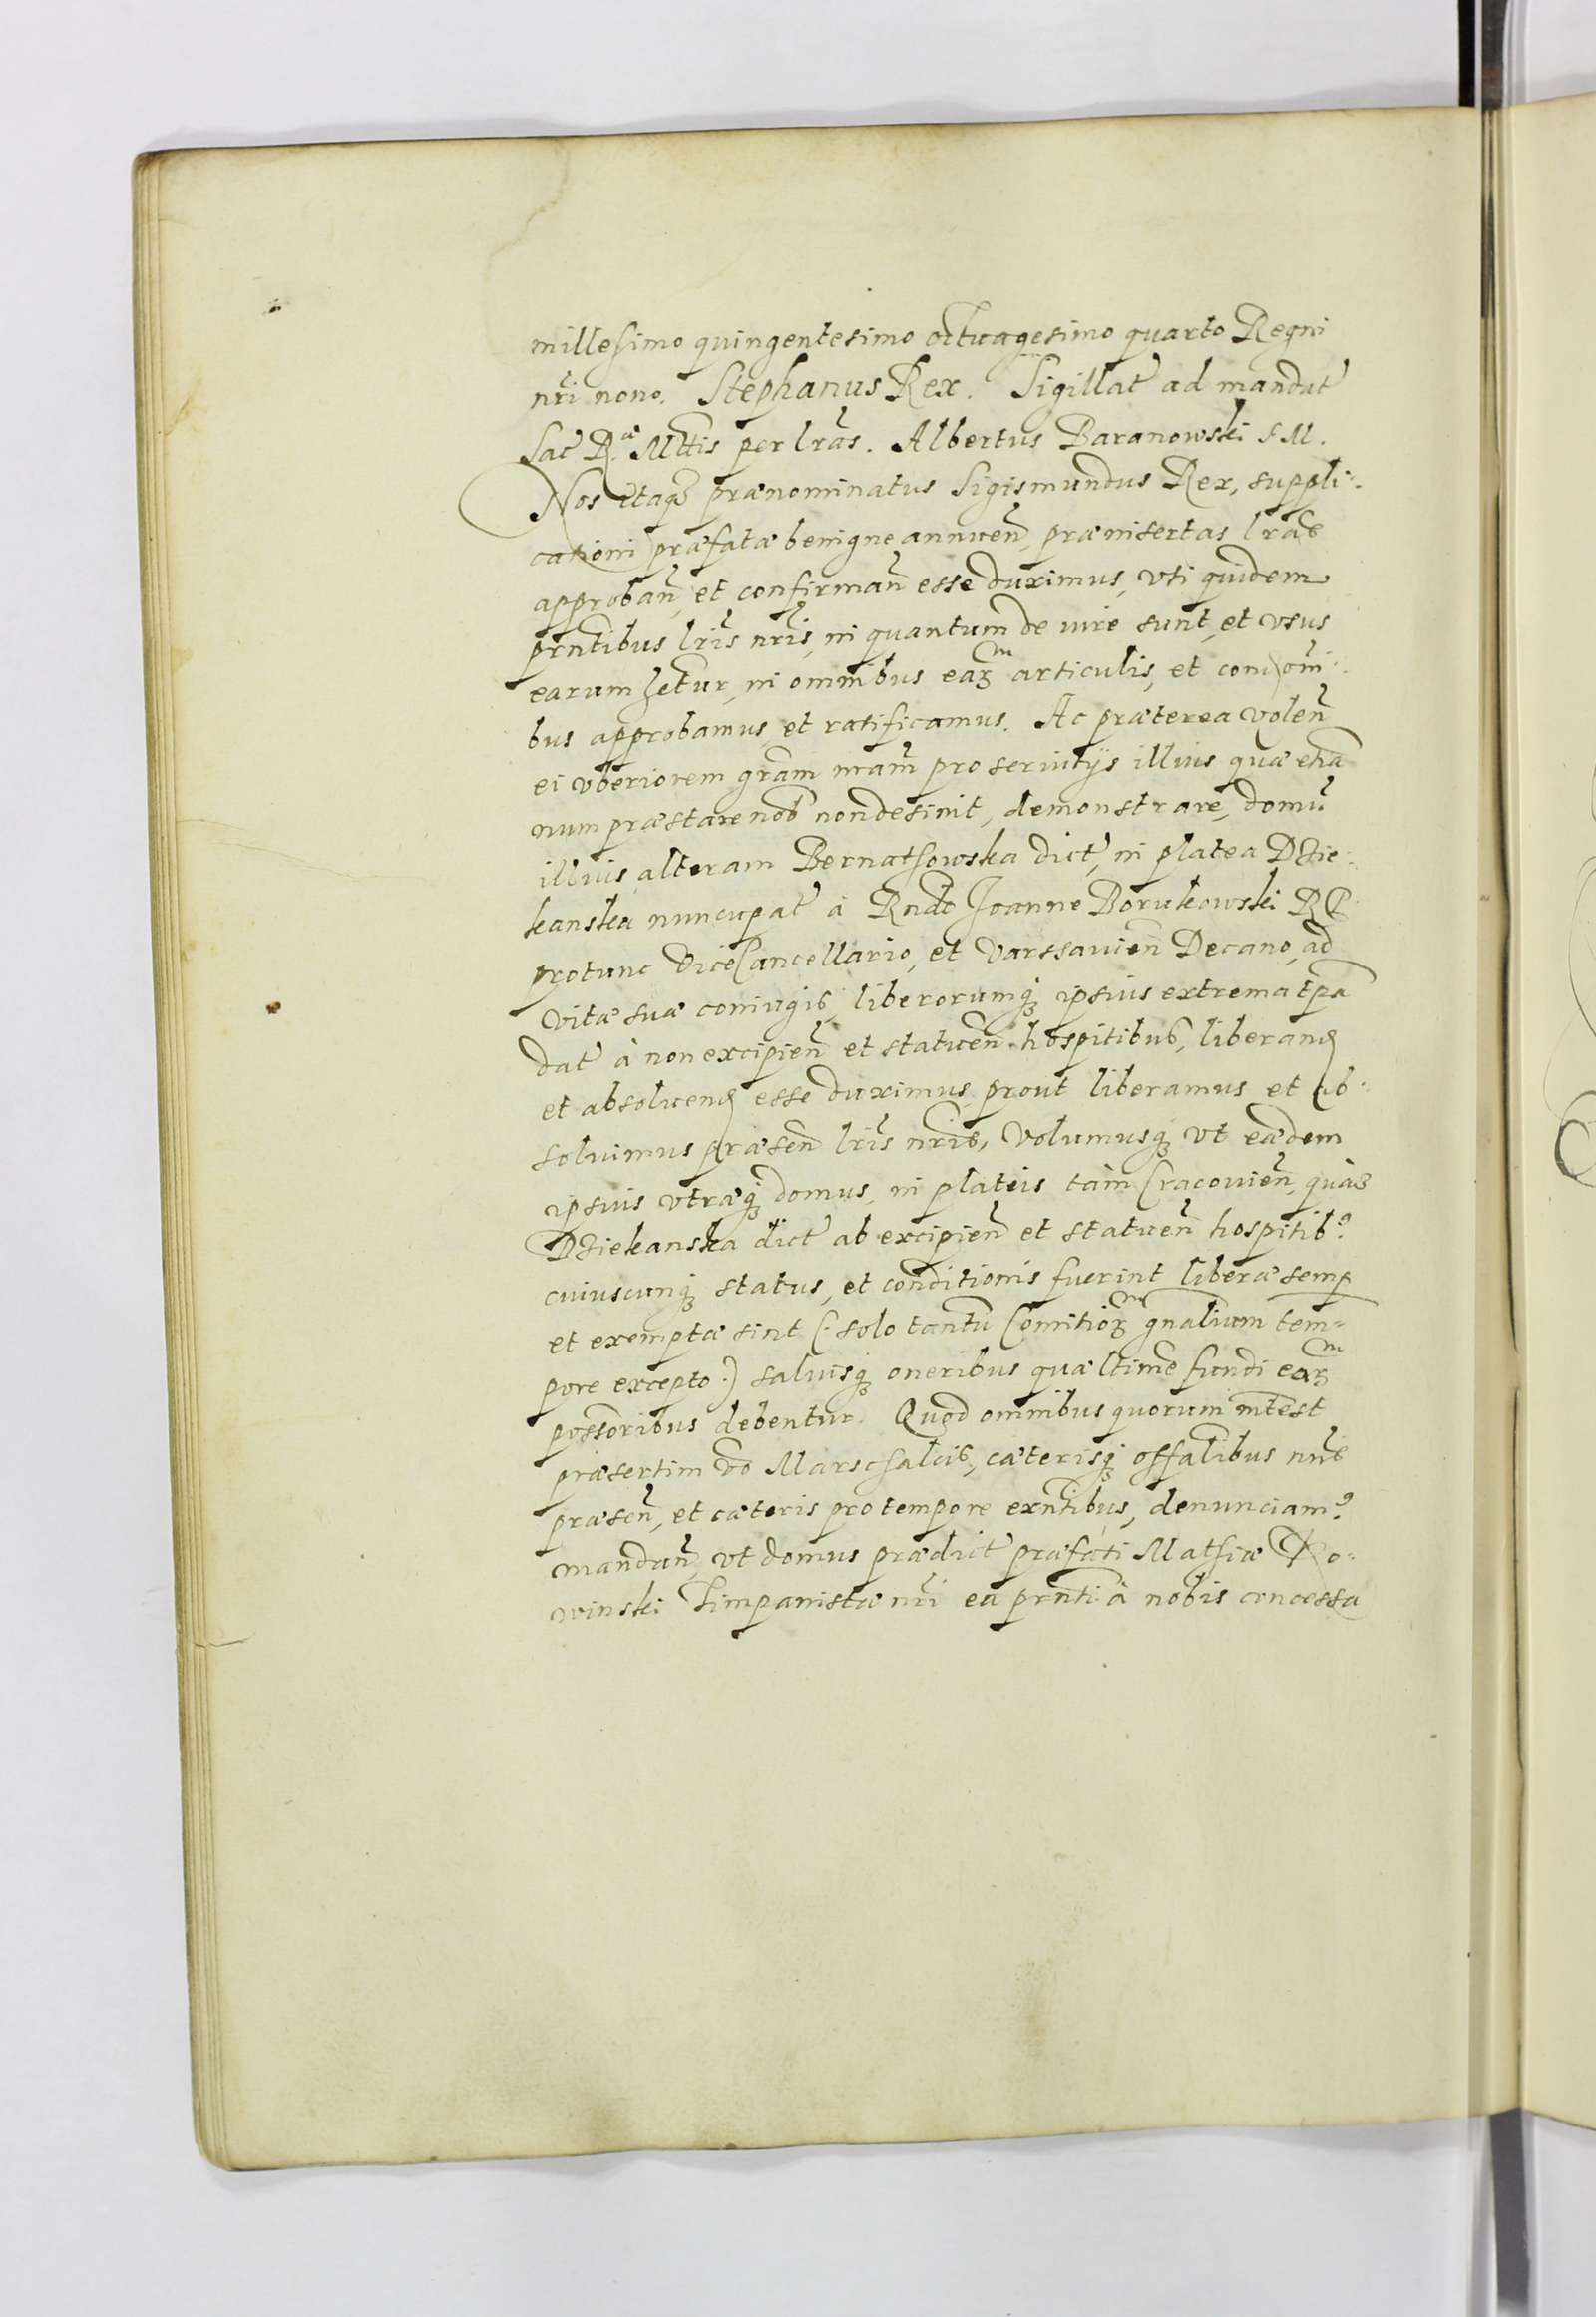 millesimo quingentesimo octuagesimo quarto Regni
nr̃i nono. Stephanus Rex. Sigillat̃ ad mandat̃
Sac̃ R.ᵃᵉ Mttis per lr̃as. Albertus Baranowski S M.
Nos itaqȝ prænominatus Sigismundus Rex, suppli-
cationi præfatæ benigne annuen̄, præinsertas lr̃as
approban̄, et confirman̄ esse duximus, vti quidem
prn̄tibus lr̃is nr̃is, in quantum de iure sunt, et vsus
earum hetur, in omnibus eaꝝ articulis, et condōni-
bus approbamus, et ratificamus. Ac præterea volen̄
ei vberiorem gram nram̄ pro seruitijs illius quæ etia
num præstare nob̄ non desinit, demonstrare, domū
illius alteram Bernathowska dict̃, in platea Dzie-
kanska nuncupat̃ à Rndo Joanne Borukowski R P
protunc ViceCancellario, et Varssauien̄ Decano, ad
vitæ suæ coniugis, liberorumqȝ ipsius extrema tp̄a
dat̃ à non excipien̄ et statuen̄ hospitibus, liberand
et absoluend esse duximus, prout liberamus et ab-
soluimus præsen̄ lr̃is nr̃is, volumusqȝ vt eædem
ipsius vtræqȝ domus, in plateis tàm Cracouien̄, quàȝ
Dziekanska dict̃ ab excipien̄ et statuen̄ hospitib⁹
cuiuscunqȝ status, et conditionis fuerint liberæ semp
et exemptæ sint (: solo tantū Comitioꝝ gnalium tem-
pore excepto :) saluisqȝ oneribus quæ ltime fundi eaꝝ
possoribus debentur. Quod omnibus quorum intest
præsertim vō Marschalcis, cæterisqȝ offalibus nris
præsen̄, et cæteris pro tempore exn̄tibus, denunciam⁹
mandan̄, vt domus prædict̃ præfati Mathiæ Ro-
winski Timpanistæ nr̃i ea prn̄ti à nobis concessa